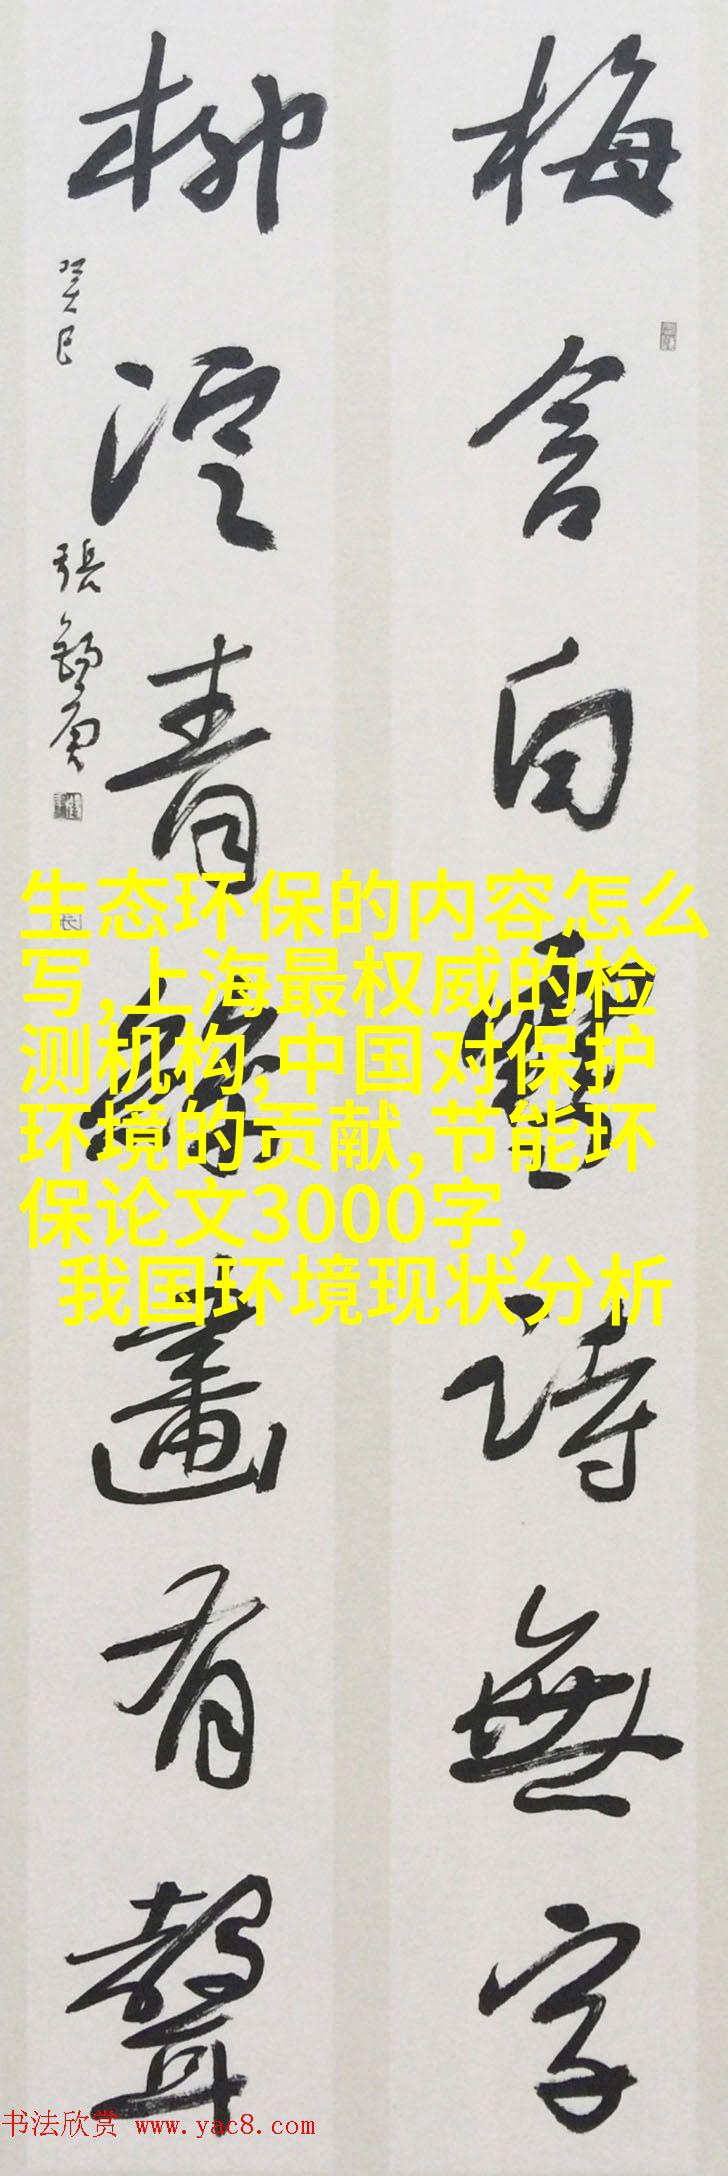 梅含白雪詩無字
柳淀青絲畫有聲
癸巳
張錫庚
生态环保的内容怎么
写,上海最权威的检
测机构,中国对保护
环境的贡献,节能环
保论文3000字,
我国环境现状分析
书法欣赏 www.yac8.com